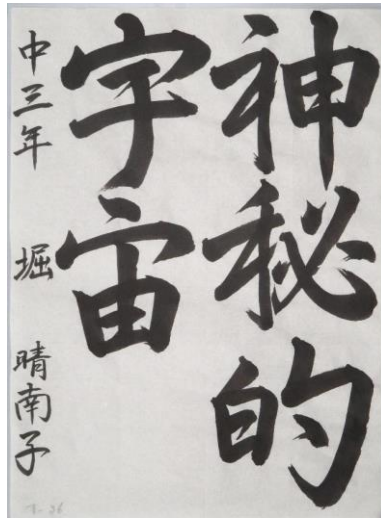 神秘的
宇宙
中三年 堀 晴南子